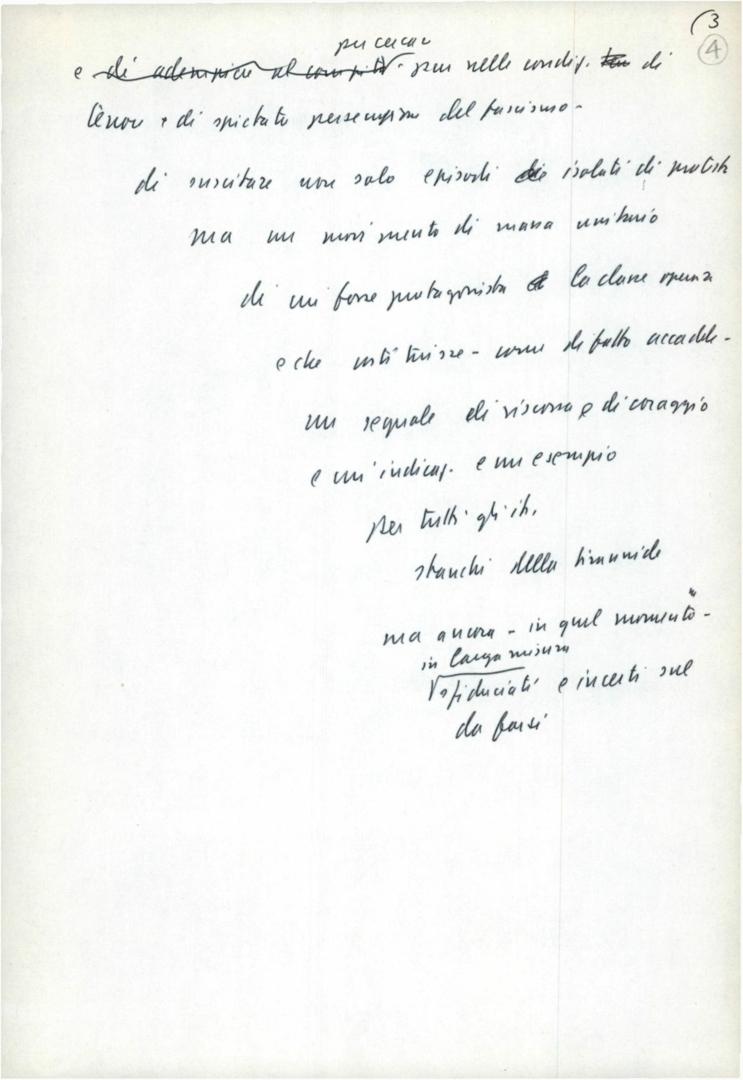 (3
4
per cercar
e di adempiere al compito - pur nelle condiz. di
terrore e di spietata persecuzione del fascismo -
di suscitare non solo episodi isolati di protesta
ma un movimento di massa unitario
di cui fosse protagonista la classe operaia
e che costituisse - come di fatto accadde -
un segnale di riscossa e di coraggio
e un'indicaz. e un esempio
per tutti gli it.
stanchi della tirannide
ma ancora - in quel momento -
in larga misura
sfiduciati e incerti sul
da farsi